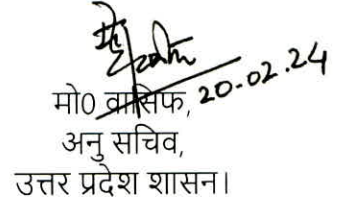 20-02.24
मो0 वासिफ,
अनु सचिव,
उत्तर प्रदेश शासन।